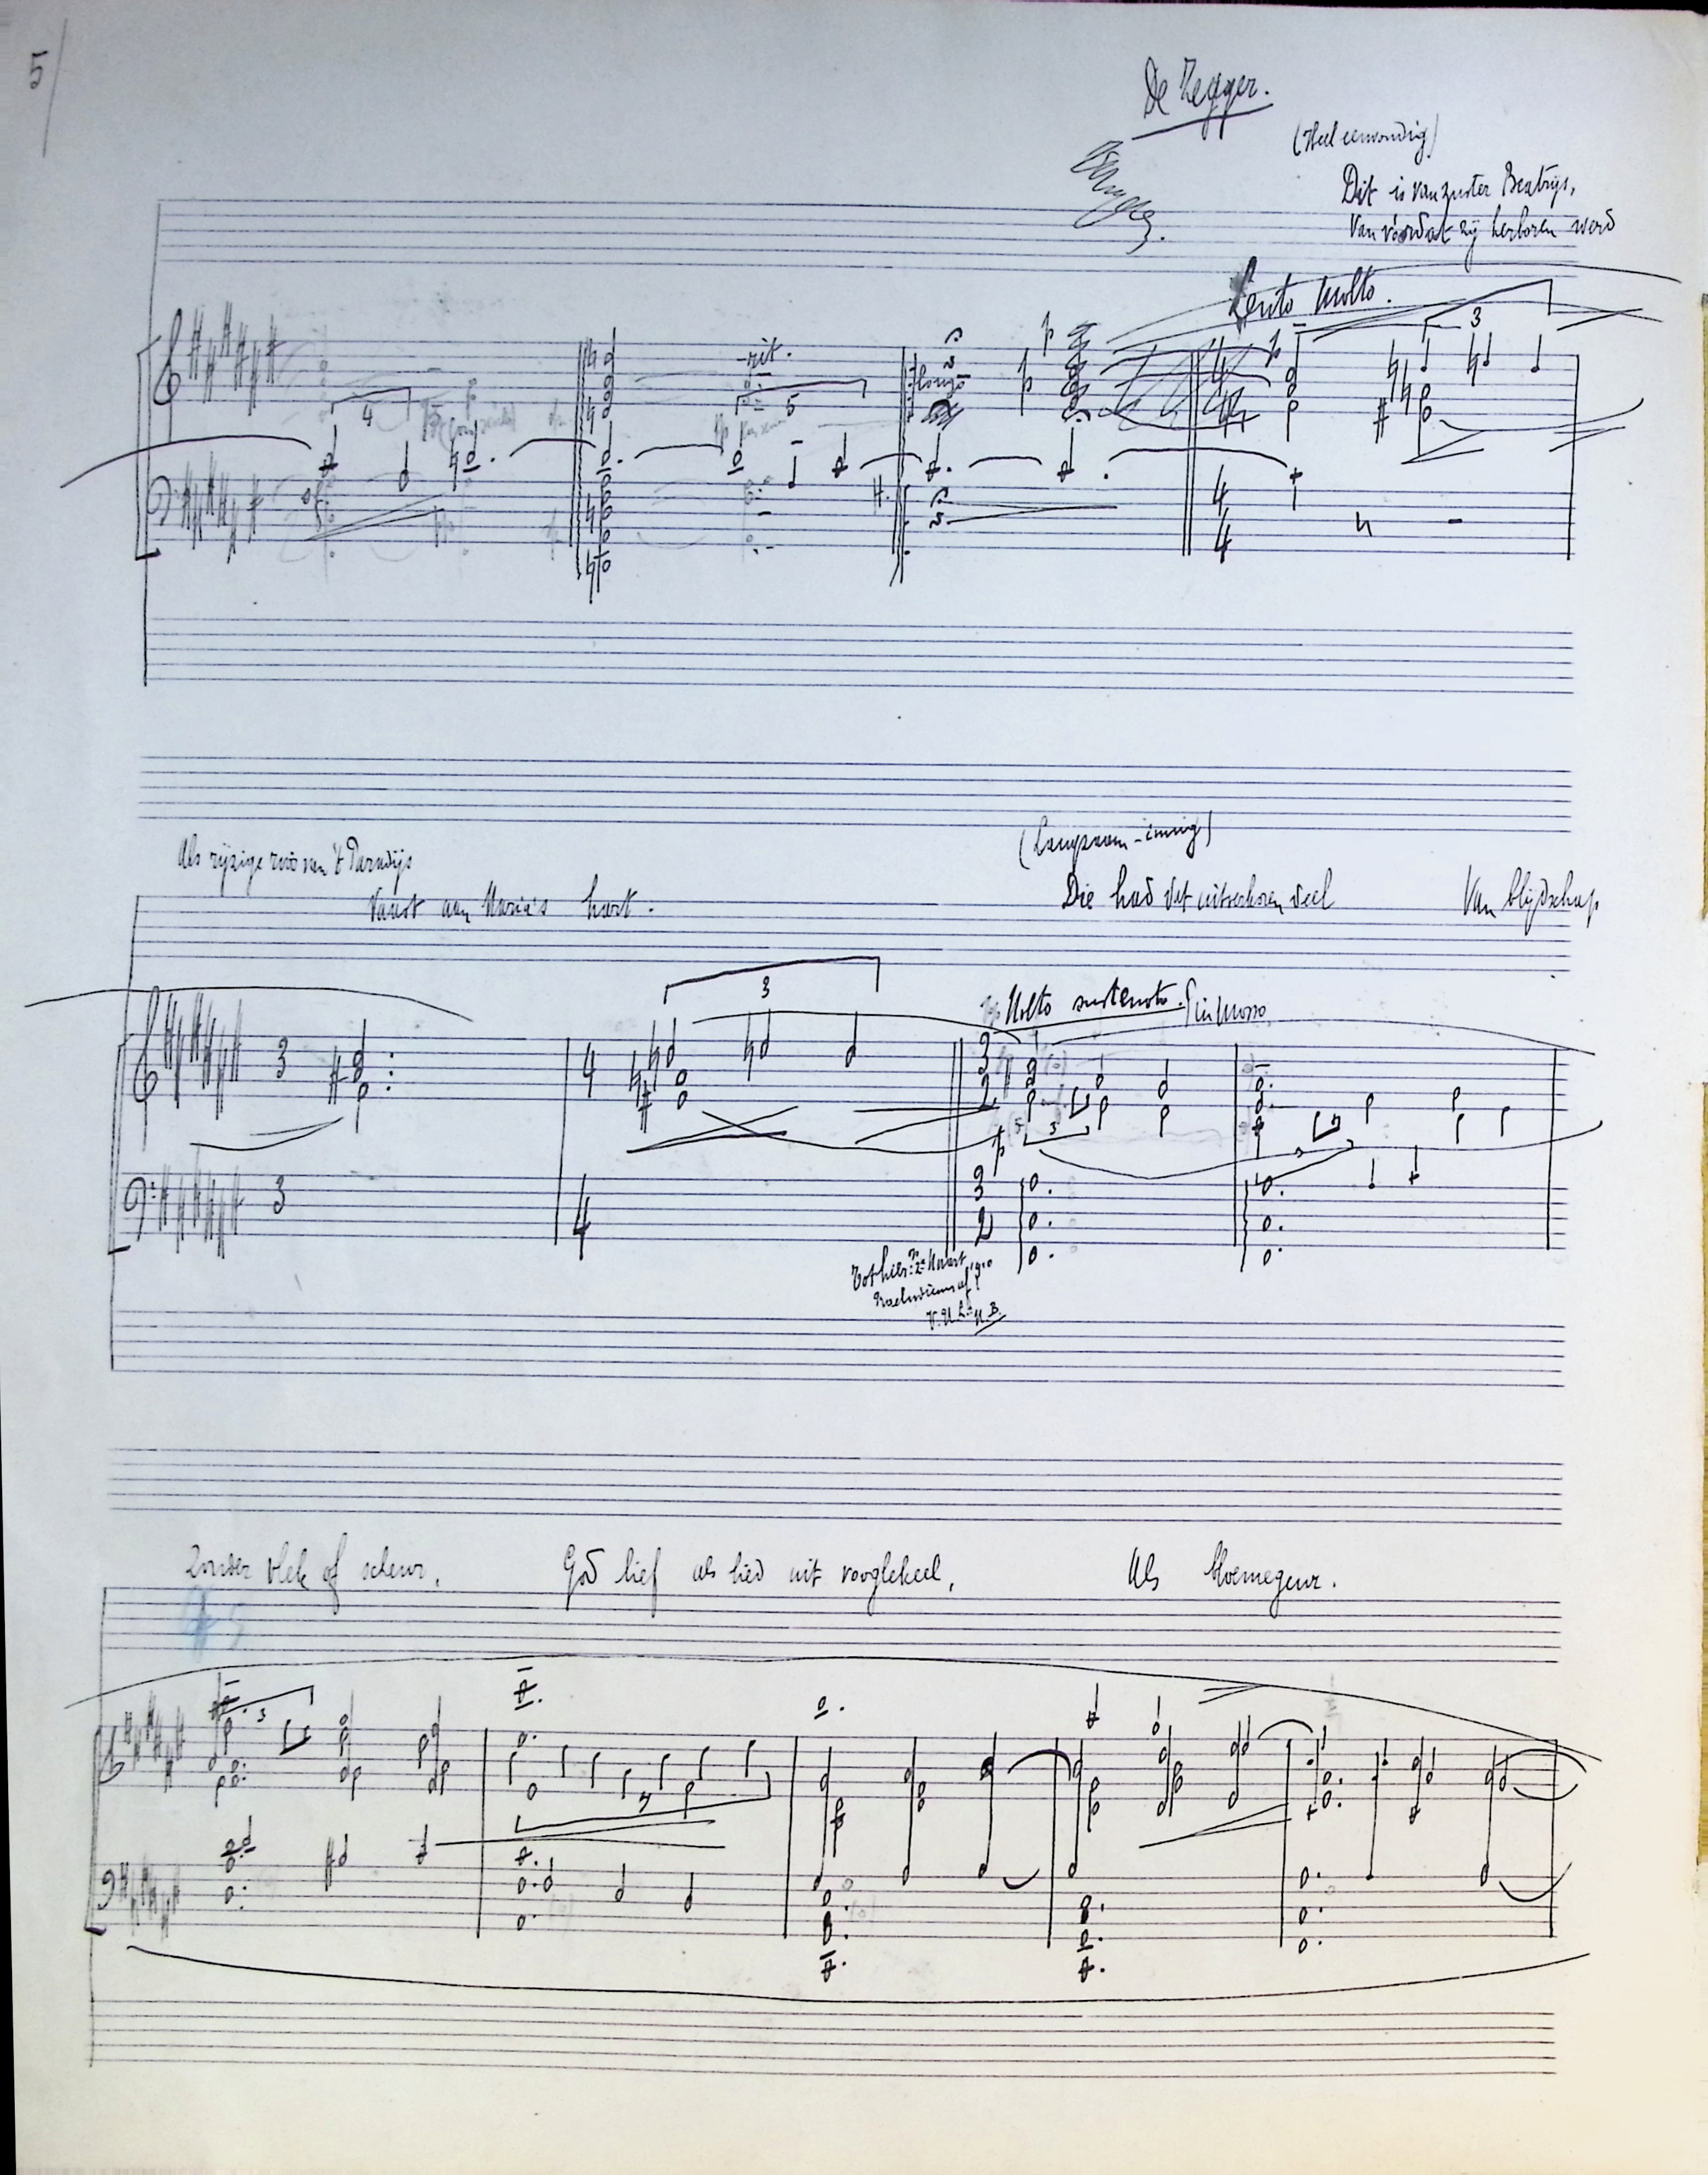 5
De Zegger.
(Heel eenvoudig)
Dit is van zuster Beatrijs,
Van vóórdat zij herboren werd
Lento Molto.
rit.
3
4
5
lunga
p
p
p
4
4
4
4
Als rijzige roos van 't Paradijs
Vaast aan Maria's hart.
(Langzaam-innig)
Die had het uitverkoren deel
Van blijdschap
3
Molto sostenuto. Più mosso
3
4
3
2
3
p
3
4
3
2
Tot hier: 2e
1910
Zonder vlek of scheur,
God lief als lied uit vooglekeel,
Als bloemegeur.
3
7